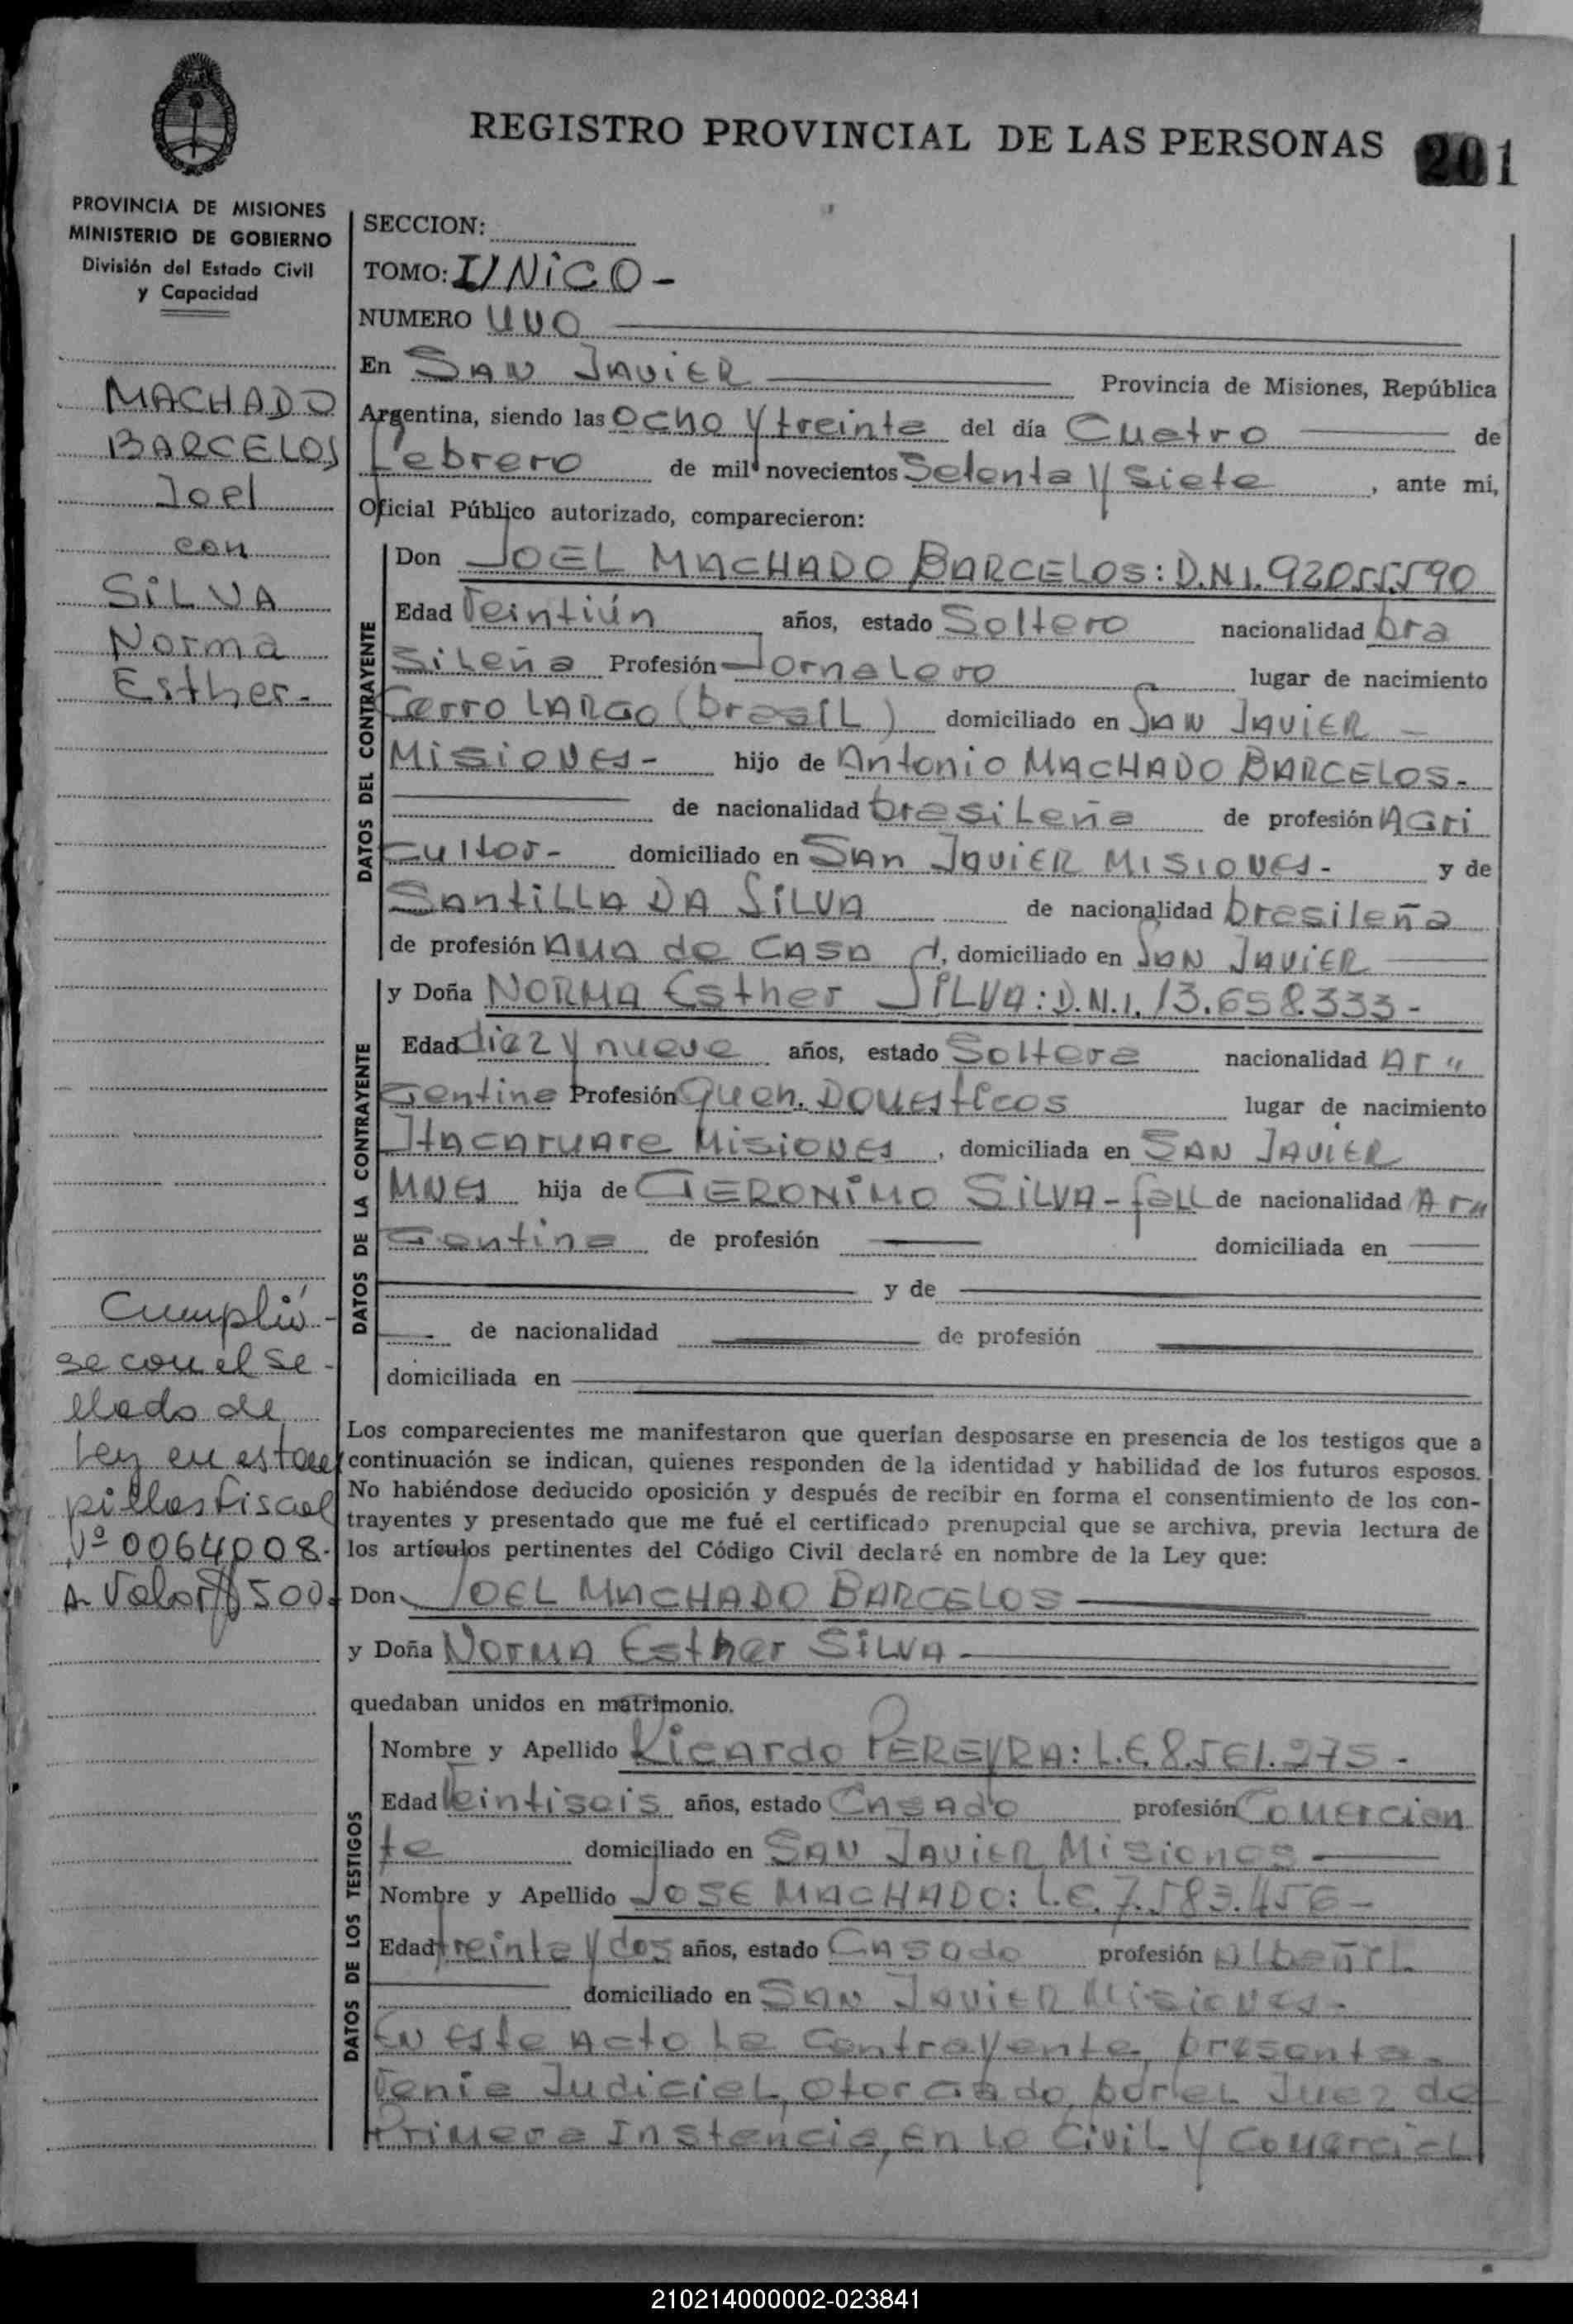 REGISTRO PROVINCIAL DE LAS PERSONAS 201
PROVINCIA DE MISIONES
MINISTERIO DE GOBIERNO
División del Estado Civil
y Capacidad
MACHADO
BARCELOS
Joel
con
SILVA
Norma
Esther-
Cumplió-
se con el se-
llado de
Ley en estam
pillas fiscal
Nº 0064008.
A- Valor $ 500.
SECCION:
TOMO: UNICO-
NUMERO UNO
En SAN JAVIER Provincia de Misiones, República
Argentina, siendo las ocho y treinta del día Cuatro de
Febrero de mil novecientos Setenta y siete, ante mi,
Oficial Público autorizado, comparecieron:
DATOS DEL CONTRAYENTE
Don JOEL MACHADO BARCELOS: D.N.I. 92055590
Edad Veintiún años, estado Soltero nacionalidad bra
sileña Profesión Jornalero lugar de nacimiento
Cerro LARGO (brasIL) domiciliado en SAN JAVIER -
MISIONES- hijo de Antonio MACHADO BARCELOS.-
de nacionalidad brasileña de profesión AGri
cultor- domiciliado en SAn JAVIER MISIONES- y de
SAntiLLA DA SILVA de nacionalidad brasileña
de profesión AMA de CASA, domiciliado en SAN JAVIER
DATOS DE LA CONTRAYENTE
y Doña NORMA Esther SILVA: D.N.I. 13.658.333-
Edad diez y nueve años, estado Soltera nacionalidad Ar"
Gentina Profesión Queh. DOMESticos lugar de nacimiento
ItACARUARE MISIONES, domiciliada en SAN JAVIER
MNES hija de GERONIMO SILVA- fall de nacionalidad Ar"
Gentina de profesión domiciliada en
y de
de nacionalidad de profesión
domiciliada en
Los comparecientes me manifestaron que querían desposarse en presencia de los testigos que a
continuación se indican, quienes responden de la identidad y habilidad de los futuros esposos.
No habiéndose deducido oposición y después de recibir en forma el consentimiento de los con-
trayentes y presentado que me fué el certificado prenupcial que se archiva, previa lectura de
los artículos pertinentes del Código Civil declaré en nombre de la Ley que:
Don JOEL MACHADO BARCELOS
y Doña NorMA Esther SILVA
quedaban unidos en matrimonio.
DATOS DE LOS TESTIGOS
Nombre y Apellido Ricardo PEREYRA: L.E. 8.561.275-
Edad Veintiseis años, estado CASADO profesión Comercian
te domiciliado en SAN JAVIER Misiones
Nombre y Apellido JOSE MACHADO: L.E. 7.583.456-
Edad treinta y dos años, estado CASADO profesión Albañil
domiciliado en SAN JAVIER MISIONES-
En este Acto la contrayente, presenta
Venia Judicial, otorgado por el Juez de
Primera Instancia, en lo Civil y Comercial
210214000002-023841